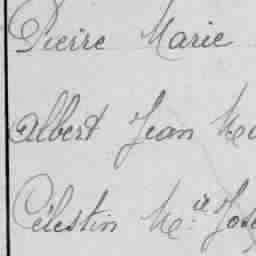 Pierre Marie
Albert Jean Ma
Célestin M.ie Jose